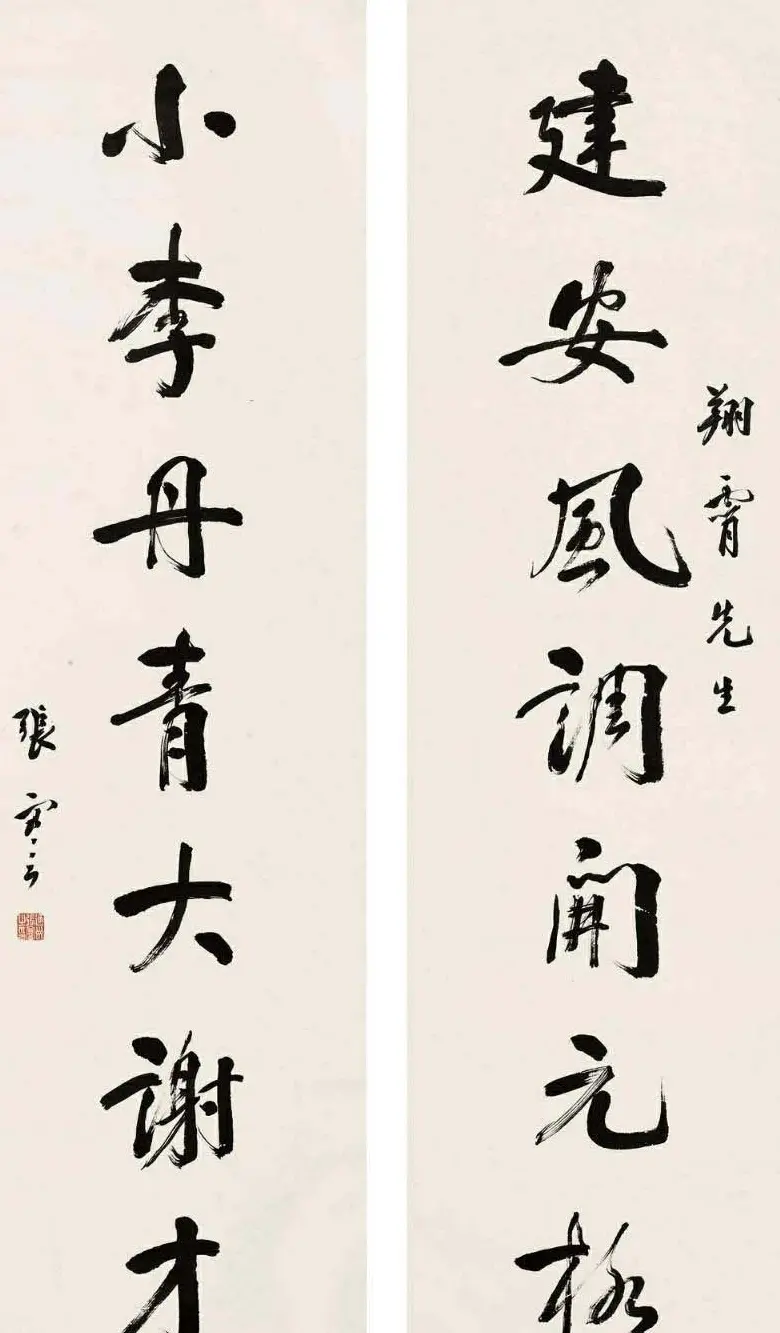 翔霄先生
建安風調開元格
小李丹青大謝才
張